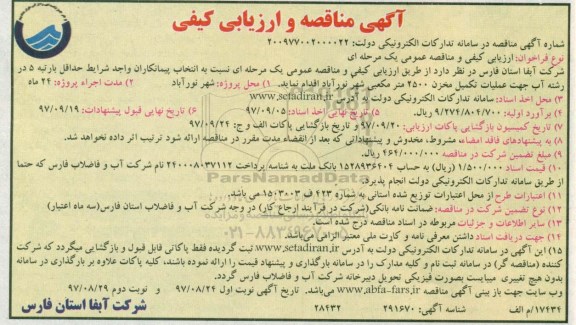 آگهی مناقصه و ارزیابی کیفی
شماره آگهی مناقصه در سامانه تدارکات الکترونیکی دولت: ۲۰۰۹۷۷۰۰۲۰۰۰۰۲۲
نوع فراخوان: ارزیابی کیفی و مناقصه عمومی یک مرحله ای
شرکت آبفا استان فارس در نظر دارد از طریق ارزیابی کیفی و مناقصه عمومی یک مرحله ای نسبت به انتخاب پیمانکاران واجد شرایط حداقل پارتبه ۵ در
رشته آب جهت عملیات تکمیل مخزن ۲۵۰۰ متر مکعبی شهر نورآباد اقدام نماید. ۱) محل پروژه: شهر نورآباد ۲) مدت اجراء پروژه: ۲۴ ماه
۳) محل اخذ اسناد: سامانه تدارکات الکترونیکی دولت و آدرس www.setadiran.ir
۴) برآورد اولیه: ۹/۲۷۴/۸۰۴/۷۰۰ ریال ۵) تاریخ نهایی اخذ اسناد: ۹۷/۰۹/۰۵ ۶) تاریخ نهایی قبول پیشنهادات: ۹۷/۰۹/۱۹
۷) تاریخ کمیسیون بازگشایی پاکات ارزیابی: ۹۷/۰۹/۲۰ و تاریخ بازگشایی پاکات الف و ج: ۹۷/۰۹/۲۴
۸) به پیشنهادهای فاقد امضاء مشروط، مخدوش و پیشنهاداتی که بعد از انقضاء مدت مقرر در مناقصه ارائه شود ترتیب اثر داده نخواهد شد.
۹) مبلغ تضمین شرکت در مناقصه: ۴۶۴/۰۰۰/۰۰۰ ریال
۱۰) قیمت اسناد: ۱/۵۰۰/۰۰۰ (ریال) به حساب ۱۵۲۸۹۳۶۴۰۴ بانک ملت به شناسه پرداخت ۲۴۰۰۰۸۰۳۷۱۱۲ نام شرکت آب و فاضلاب فارس که حتما
از طریق سامانه تدارکات الکترونیکی دولت انجام پذیرد.
۱۱) اعتبارات طرح از محل اعتبارات توزیع شده استانی به شماره ۴۲۳ ف ۱۵۰۳۰۰۳ می باشد.
۱۲) نوع تضمین شرکت در مناقصه: ضمانت نامه بانکی (شرکت در فرآیند ارجاع کار) در وجه شرکت آب و فاضلاب استان فارس (سه ماه اعتبار)
۱۳) سایر اطلاعات و جزئیات مربوطه در اسناد مناقصه درج شده است.
۱۴) جهت دریافت اسناد داشتن معرفی نامه و کارت ملی معتبر الزامی می باشد.
۱۵) این آگهی در سامانه تدارکات الکترونیکی دولت به آدرس www.setadiran.ir ثبت گردیده فقط پاکاتی قابل قبول و بازگشایی میگردد که شرکت
کننده (مناقصه گر) در سامانه ثبت نام و کلیه مدارک را در سامانه بارگذاری و پیشنهاد قیمت را ارائه نموده باشند، کلیه پاکات علاوه بر بارگذاری در سامانه
بدون هیچ تغییری میبایست بصورت فیزیکی تحویل دبیرخانه شرکت آب و فاضلاب فارس گردد.
وب سایت جهت باز بینی آگهی مناقصه www.abfa-fars.ir می باشد. تاریخ آگهی نوبت اول ۹۷/۰۸/۲۴ و نوبت دوم ۹۷/۰۸/۲۹
۱۷۱۳۱/م الف شناسه آگهی: ۲۹۱۶۷۰ ۲۸۴۳۲ شرکت آبفا استان فارس
ParsNamadData
۰۲۱-۸۸۳۴۹۶۷۰-۵